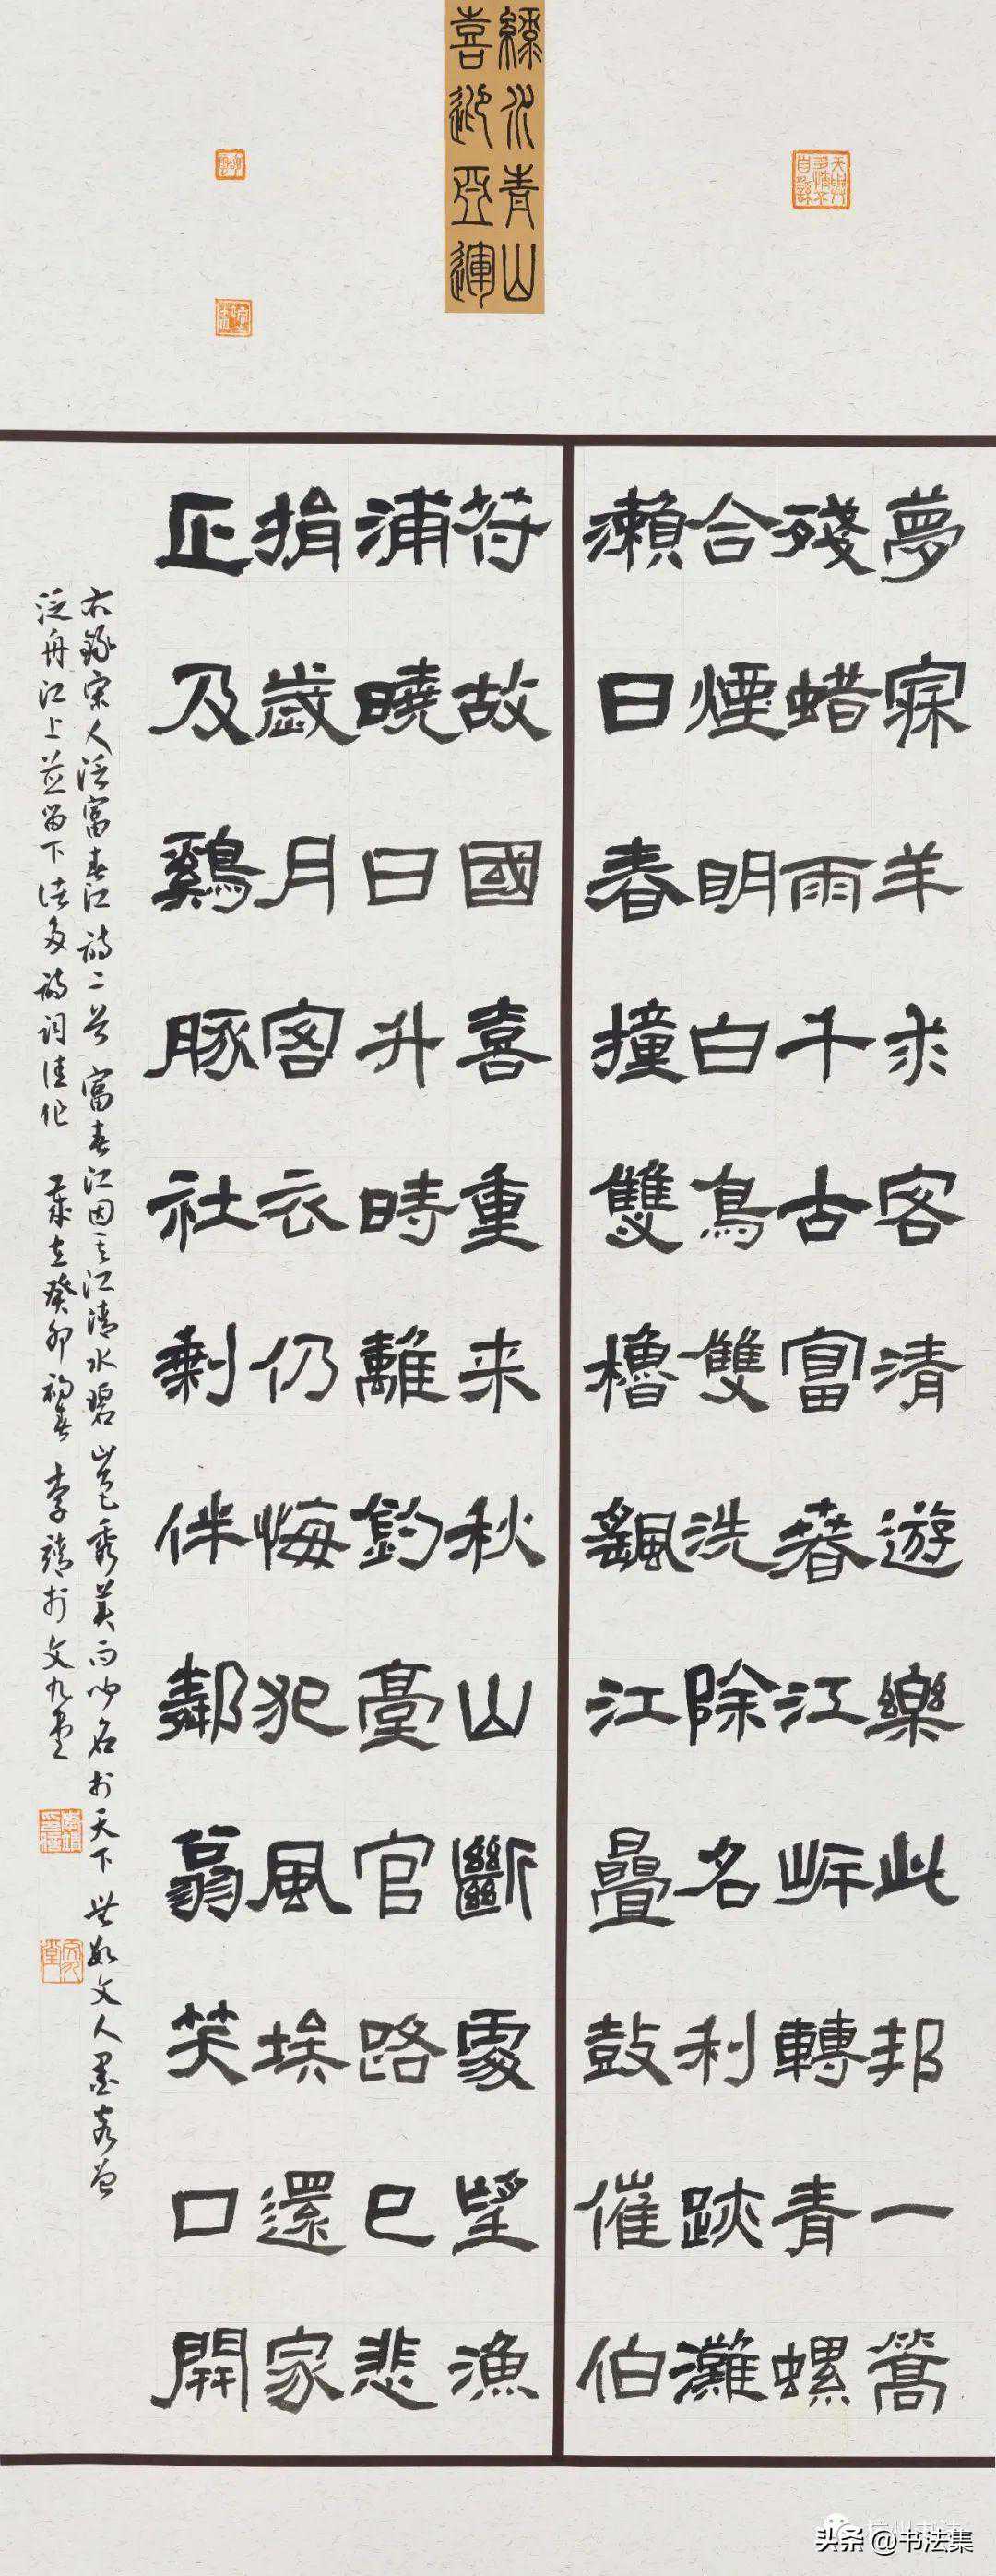 綠水青山
喜迎亞運
夢寐羊求客清遊樂此邦一篙
殘蜡雨千古富春江岸轉青螺
合煙明白鳥雙洗除名利跡灘
瀨日春撞雙櫓飄江疊鼓催伯
符故國喜重来秋山斷處望漁
浦曉日升時離釣臺官路已悲
捐歲月客衣仍悔犯風埃還家
正及鷄豚社剩伴鄰翁笑口開
右錄宋人泛富春江詩二首 富春江因其江清水碧山色秀美而聞名於天下 無數文人墨客曾
泛舟江上並留下諸多詩詞佳作 歲在癸卯初春 李靖於文九堂
头条 @书法集